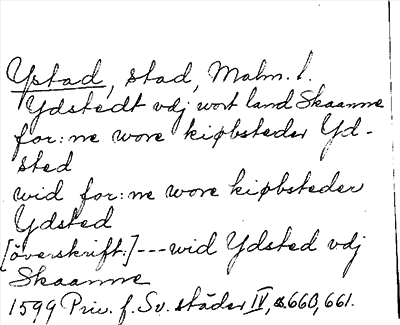 Ystad, stad, Malm. l.
Ydstedt vdj wort land Skaanne
for:ne wore kiøbsteder Yd-
sted
wid for:ne wore kiøbsteder
Ydsted
[överskrift:] --- wid Ydsted vdj
Skaanne
1599 Priv. f. Sv. städer IV, s. 660, 661.